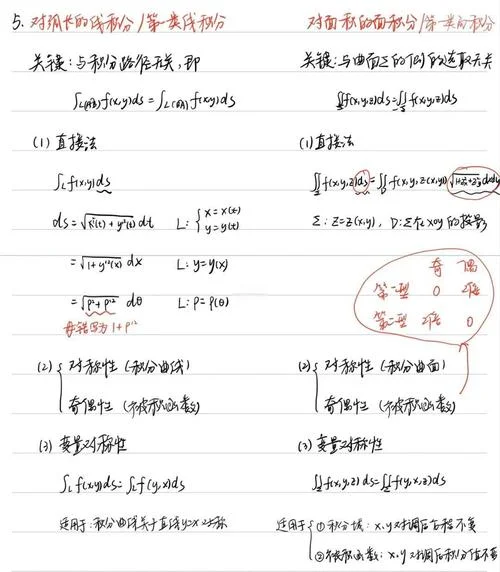 5. 对弧长的线积分/第一类线积分
关键:与积分路径无关,即
∫L(AB) f(x,y)ds = ∫L(BA) f(x,y)ds
(1) 直接法
∫L f(x,y)ds
ds = √(x'²(t) + y'²(t)) dt L: { x = x(t) y = y(t)
= √(1 + y'²(x)) dx L: y = y(x)
= √(ρ² + ρ'²) dθ L: ρ = ρ(θ)
易错写为 1 + ρ'²
(2) { 对称性 (积分曲线)
奇偶性 (被积函数)
(3) 变量对称性
∫L f(x,y)ds = ∫L f(y,x)ds
适用于:积分曲线关于直线y=x对称
对面积的面积分/第一类面积分
关键:与曲面Σ的侧的选取无关
∬Σ f(x,y,z)ds = ∬-Σ f(x,y,z)ds
(1) 直接法
∬Σ f(x,y,z)ds = ∬D f(x,y,z(x,y)) √(1+z'x²+z'y²) dxdy
Σ: z=z(x,y), D: Σ在xoy的投影
奇 偶
第一型 0 2倍
第二型 2倍 0
(2) { 对称性 (积分曲面)
奇偶性 (被积函数)
(3) 变量对称性
∬Σ f(x,y,z)ds = ∬Σ f(y,x,z)ds
适用于 { ①积分域: x,y对调后方程不变
②被积函数: x,y对调后积分值不变